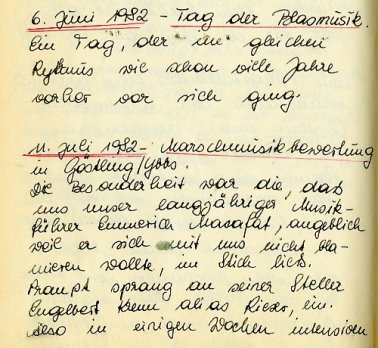 6. Juni 1982 - Tag der Blasmusik.
Ein Tag, der im gleichen
Rythmus wie schon viele Jahre
vorher vor sich ging.
11. Juli 1982 - Marschmusikbewertung
in Göstling/Ybbs.
Die Besonderheit war die, das
uns unser langjähriger Musik-
führer Emmerich, angeblich
weil er sich mit uns nicht bla-
mieren wollte, im Stich ließ.
Prompt sprang an seiner Steller
Engelbert Krenn alias Rieser, ein.
Also in einigen Wochen intensiven